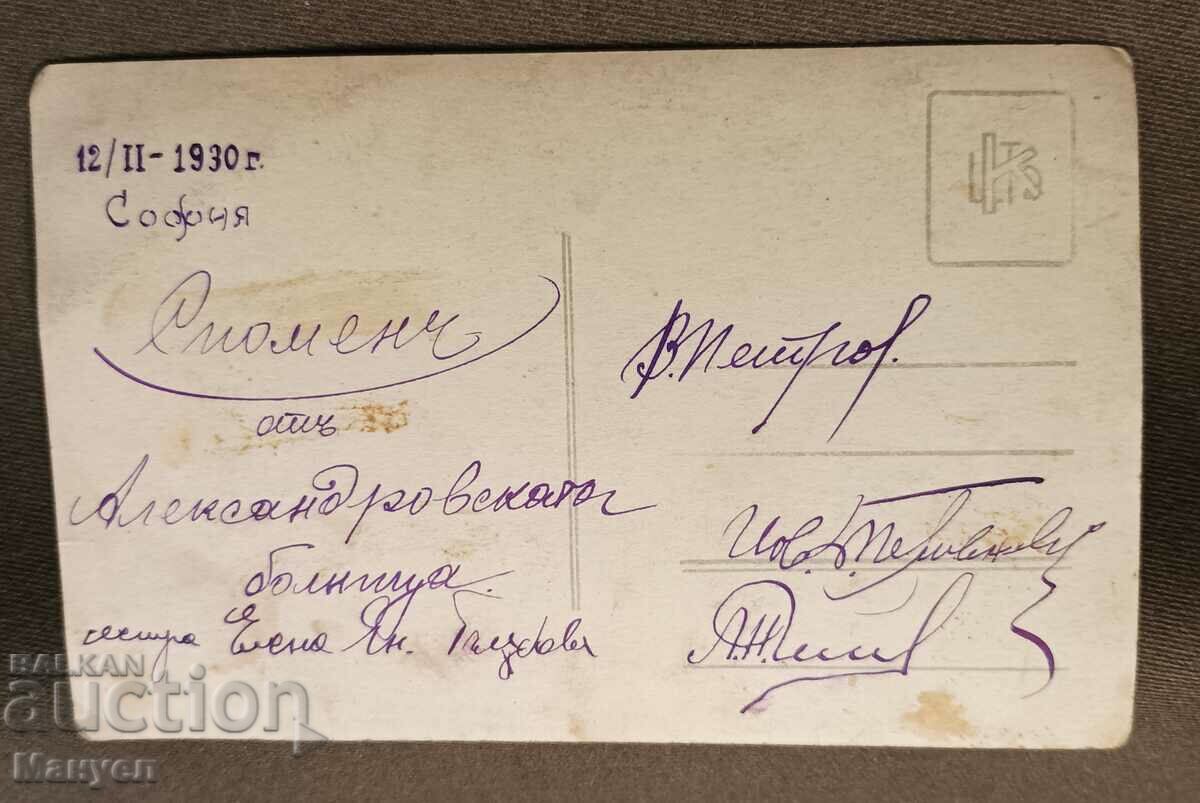 12/II-1930 г.
София
Споменъ
отъ
Александровската
болница.
сестра Елена Ян.
В. Петров.
Йов.
BALKAN
auction
Мануел